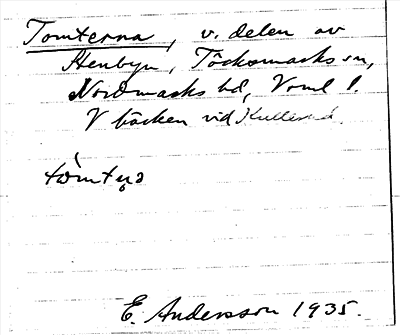 Tomterna, v. delen av
Stenbyn, Töcksmarks sn,
Nordmarks hd, Vrml l.
V bäcken vid
tòmtṇa
E. Andersson 1935.